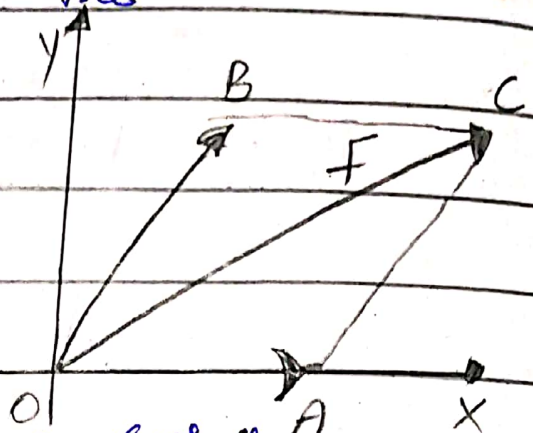 y
B
C
F
O
A
X